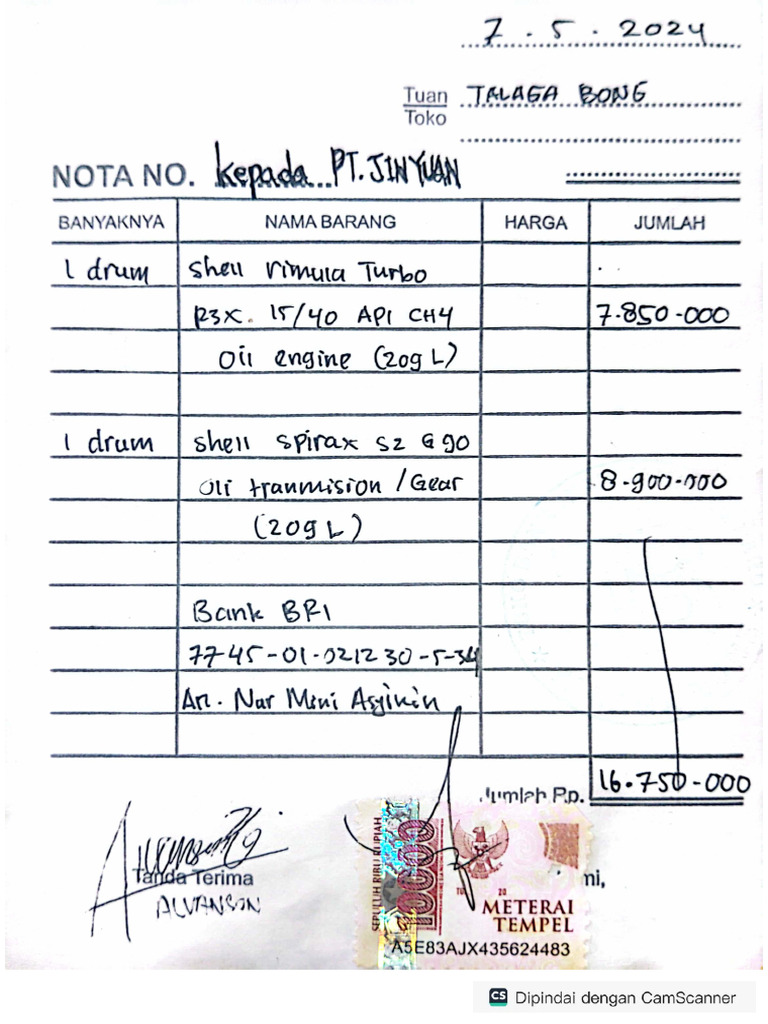 7 . 5 . 2024
Tuan TALAGA BONG
Toko
NOTA NO. kepada PT. JINYUAN
BANYAKNYA NAMA BARANG HARGA JUMLAH
1 drum shell rimula Turbo
R3X. 15/40 API CH4 7.850-000
Oil engine (209 L)
1 drum shell spirax S2 G 90
Oli tranmision / Gear 8-900-000
(209 L)
Bank BRI
7745-01-021230-5-34
An. Nur Meni Asyikin
Jumlah Rp. 16.750-000
Tanda Terima
ALVANSON
SEPULUH RIBU RUPIAH
10000
TGL 20
mi,
METERAI
TEMPEL
A5E83AJX435624483
CS Dipindai dengan CamScanner